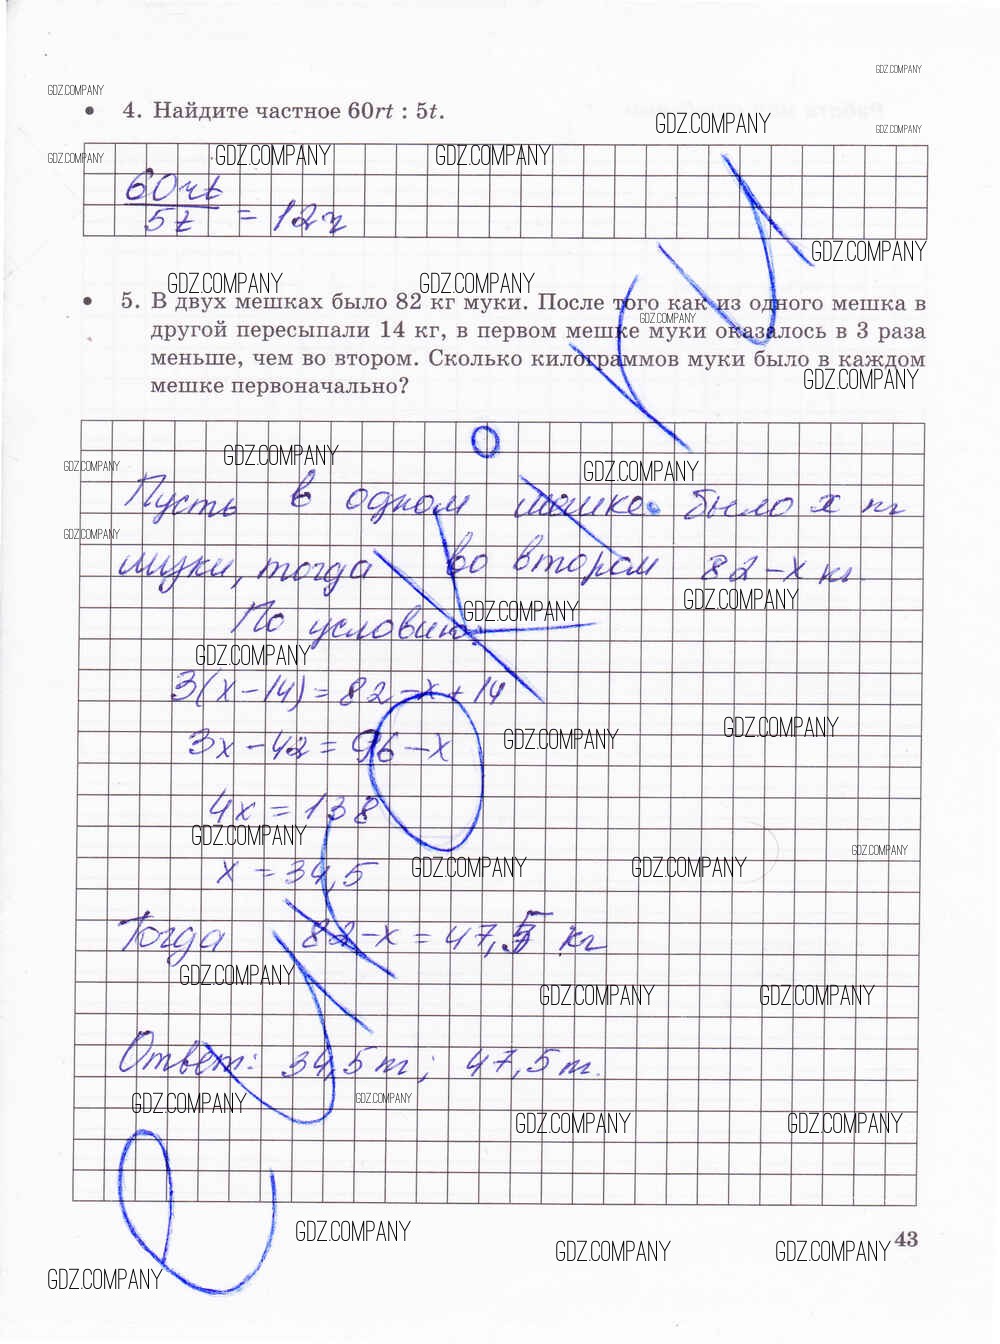 GDZ.COMPANY
GDZ.COMPANY
• 4. Найдите частное 60rt : 5t.
GDZ.COMPANY
GDZ.COMPANY
GDZ.COMPANY GDZ.COMPANY GDZ.COMPANY
60rt
5t = 12r
GDZ.COMPANY
GDZ.COMPANY GDZ.COMPANY
• 5. В двух мешках было 82 кг муки. После того как из одного мешка в
GDZ.COMPANY
другой пересыпали 14 кг, в первом мешке муки оказалось в 3 раза
меньше, чем во втором. Сколько килограммов муки было в каждом
GDZ.COMPANY
мешке первоначально?
GDZ.COMPANY
GDZ.COMPANY GDZ.COMPANY
Пусть в одном мешке было x кг
GDZ.COMPANY
муки, тогда во втором 82-x кг.
GDZ.COMPANY
GDZ.COMPANY
По условию
GDZ.COMPANY
3(x-14)=82-x+14
GDZ.COMPANY GDZ.COMPANY
3x-42=96-x
4x=138
GDZ.COMPANY
GDZ.COMPANY
GDZ.COMPANY GDZ.COMPANY
x=34,5
Тогда 82-x=47,5 кг
GDZ.COMPANY
GDZ.COMPANY GDZ.COMPANY
Ответ: 34,5 кг; 47,5 кг.
GDZ.COMPANY GDZ.COMPANY
GDZ.COMPANY GDZ.COMPANY
GDZ.COMPANY
43
GDZ.COMPANY GDZ.COMPANY
GDZ.COMPANY